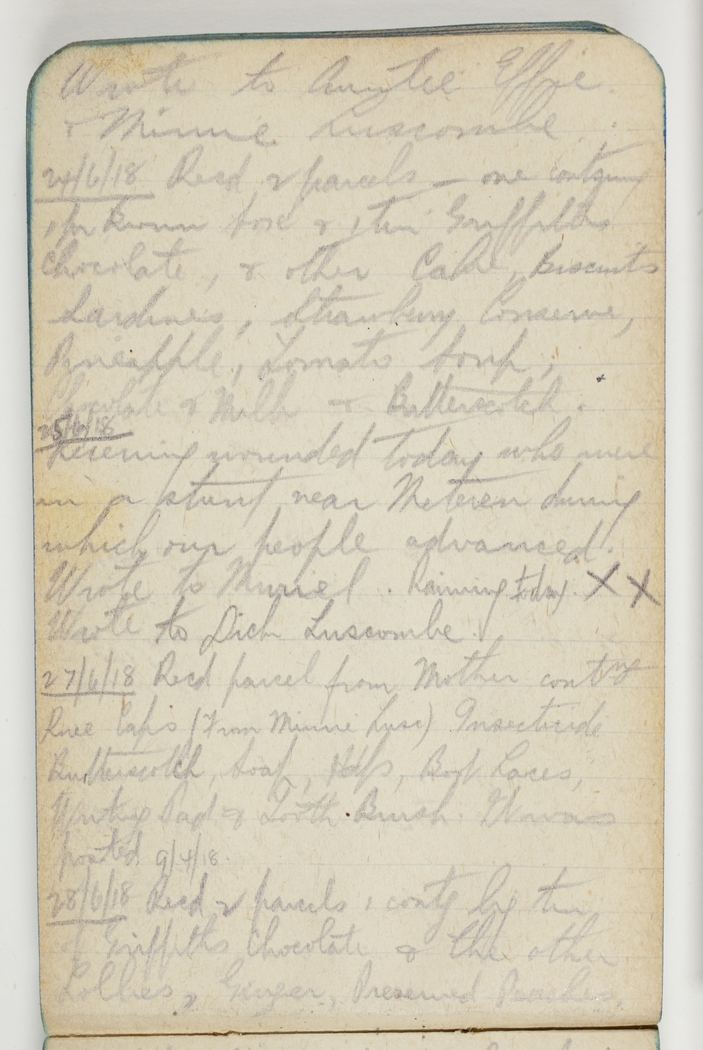 Wrote to Auntie Effie
& Minnie Luscombe.
24/6/18 Recd 2 parcels – one contgning
1 pr Brown Sox & 1 tin Griffiths
Chocolate, & other Cake, Biscuits
Sardines, Strawberry Conserve,
Pineapple, Tomato Soup,
Chocolate & Milk & Butterscotch.
25/6/18
Receiving wounded today who were
in a stunt near Meteren during
which our people advanced.
Wrote to Muriel. Raining today. X X
Wrote to Dick Luscombe.
27/6/18 Recd parcel from Mother contng
Knee Caps (From Minnie Lusc) Insecticide
Butterscotch, Soap, Boot Laces,
Writing Pad & Tooth Brush. It was
posted 9/4/18.
28/6/18 Recd 2 parcels, 1 contg lge tin
of Griffiths Chocolate & the other
Lollies, Ginger, Preserved Peaches,